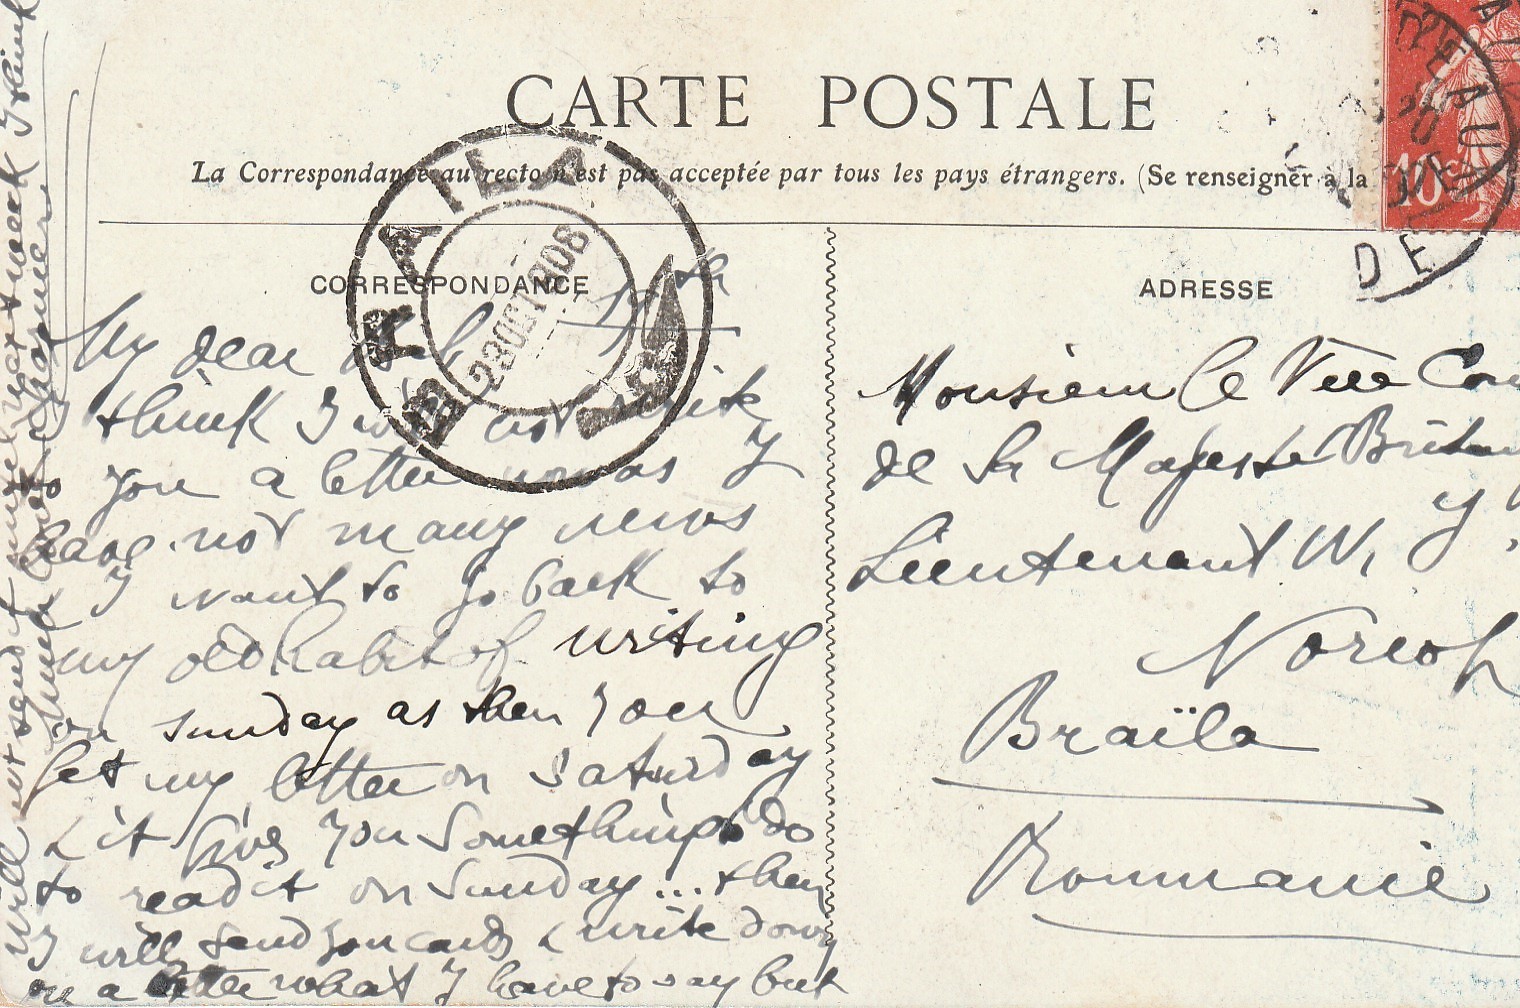 CARTE POSTALE
La Correspondance au recto n'est pas acceptée par tous les pays étrangers. (Se renseigner à la
CORRESPONDANCE
ADRESSE
BRAILA
23 OCT 1908
10c
DE
My dear
think I will not write
you a letter now as I
have not many news
I want to go back to
my old habit of writing
on Sunday as then you
get my letter on Saturday
& it gives you something to do
to read it on Sunday... then
I will send you cards & write down
on a letter what I have to say but
will not send it until next week I think
Monsieur le Vice Con
de Sa Majesté Britan
Lieutenant W. Y.
Braïla
Roumanie